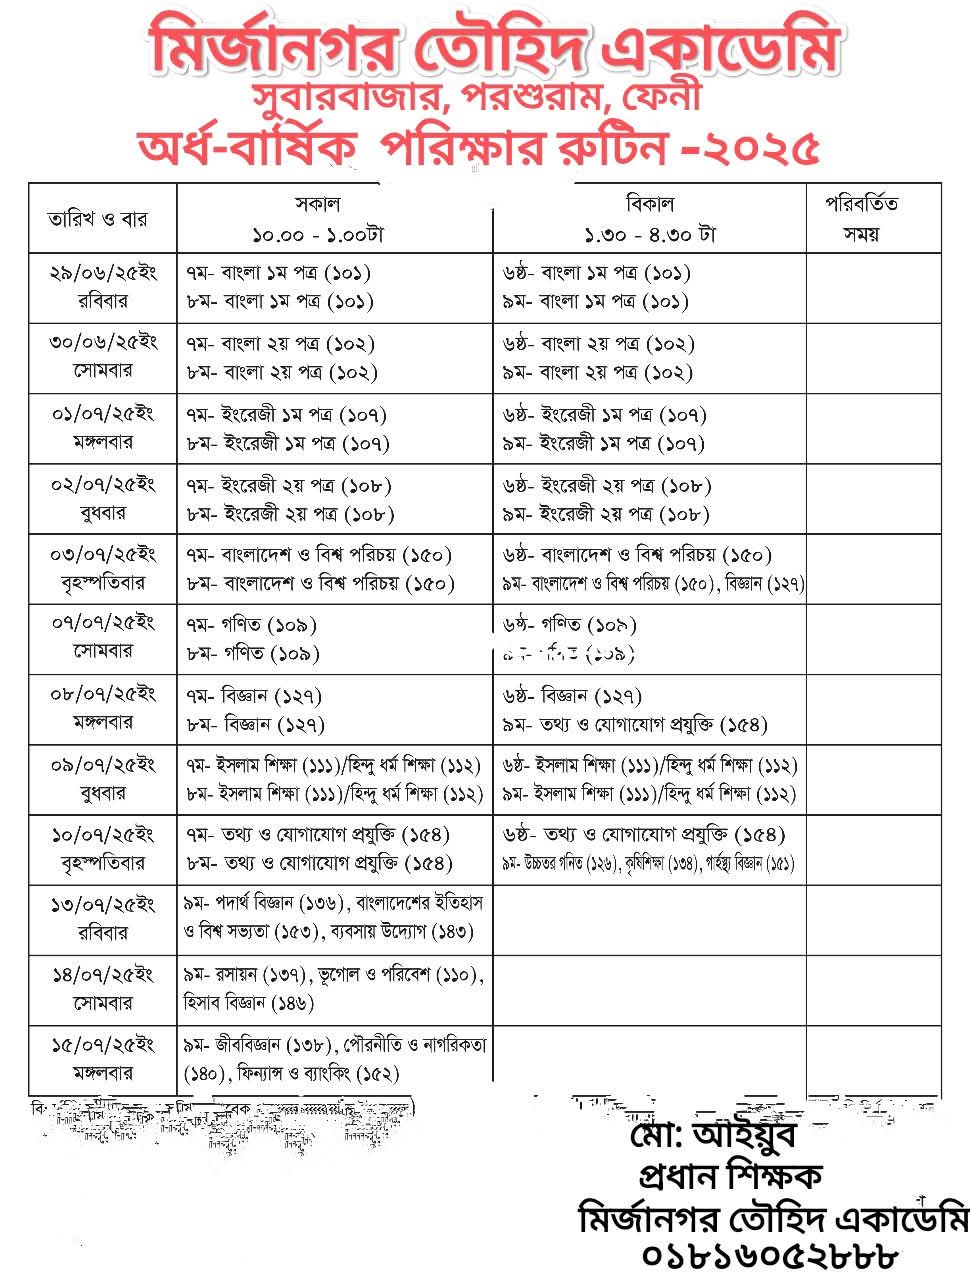 মির্জানগর তৌহিদ একাডেমি
সুবারবাজার, পরশুরাম, ফেনী
অর্ধ-বার্ষিক পরিক্ষার রুটিন -২০২৫
তারিখ ও বার
সকাল
১০.০০ - ১.০০টা
বিকাল
১.৩০ - ৪.৩০ টা
পরিবর্তিত
সময়
২৯/০৬/২৫ইং
রবিবার
৭ম- বাংলা ১ম পত্র (১০১)
৮ম- বাংলা ১ম পত্র (১০১)
৬ষ্ঠ- বাংলা ১ম পত্র (১০১)
৯ম- বাংলা ১ম পত্র (১০১)
৩০/০৬/২৫ইং
সোমবার
৭ম- বাংলা ২য় পত্র (১০২)
৮ম- বাংলা ২য় পত্র (১০২)
৬ষ্ঠ- বাংলা ২য় পত্র (১০২)
৯ম- বাংলা ২য় পত্র (১০২)
০১/০৭/২৫ইং
মঙ্গলবার
৭ম- ইংরেজী ১ম পত্র (১০৭)
৮ম- ইংরেজী ১ম পত্র (১০৭)
৬ষ্ঠ- ইংরেজী ১ম পত্র (১০৭)
৯ম- ইংরেজী ১ম পত্র (১০৭)
০২/০৭/২৫ইং
বুধবার
৭ম- ইংরেজী ২য় পত্র (১০৮)
৮ম- ইংরেজী ২য় পত্র (১০৮)
৬ষ্ঠ- ইংরেজী ২য় পত্র (১০৮)
৯ম- ইংরেজী ২য় পত্র (১০৮)
০৩/০৭/২৫ইং
বৃহস্পতিবার
৭ম- বাংলাদেশ ও বিশ্ব পরিচয় (১৫০)
৮ম- বাংলাদেশ ও বিশ্ব পরিচয় (১৫০)
৬ষ্ঠ- বাংলাদেশ ও বিশ্ব পরিচয় (১৫০)
৯ম- বাংলাদেশ ও বিশ্ব পরিচয় (১৫০), বিজ্ঞান (১২৭)
০৭/০৭/২৫ইং
সোমবার
৭ম- গণিত (১০৯)
৮ম- গণিত (১০৯)
৬ষ্ঠ- গণিত (১০৯)
(১০৯)
০৮/০৭/২৫ইং
মঙ্গলবার
৭ম- বিজ্ঞান (১২৭)
৮ম- বিজ্ঞান (১২৭)
৬ষ্ঠ- বিজ্ঞান (১২৭)
৯ম- তথ্য ও যোগাযোগ প্রযুক্তি (১৫৪)
০৯/০৭/২৫ইং
বুধবার
৭ম- ইসলাম শিক্ষা (১১১)/হিন্দু ধর্ম শিক্ষা (১১২)
৮ম- ইসলাম শিক্ষা (১১১)/হিন্দু ধর্ম শিক্ষা (১১২)
৬ষ্ঠ- ইসলাম শিক্ষা (১১১)/হিন্দু ধর্ম শিক্ষা (১১২)
৯ম- ইসলাম শিক্ষা (১১১)/হিন্দু ধর্ম শিক্ষা (১১২)
১০/০৭/২৫ইং
বৃহস্পতিবার
৭ম- তথ্য ও যোগাযোগ প্রযুক্তি (১৫৪)
৮ম- তথ্য ও যোগাযোগ প্রযুক্তি (১৫৪)
৬ষ্ঠ- তথ্য ও যোগাযোগ প্রযুক্তি (১৫৪)
৯ম- উচ্চতর গনিত (১২৬), কৃষিশিক্ষা (১৩৪), গার্হস্থ্য বিজ্ঞান (১৫১)
১৩/০৭/২৫ইং
রবিবার
৯ম- পদার্থ বিজ্ঞান (১৩৬), বাংলাদেশের ইতিহাস
ও বিশ্ব সভ্যতা (১৫৩), ব্যবসায় উদ্যোগ (১৪৩)
১৪/০৭/২৫ইং
সোমবার
৯ম- রসায়ন (১৩৭), ভূগোল ও পরিবেশ (১১০),
হিসাব বিজ্ঞান (১৪৬)
১৫/০৭/২৫ইং
মঙ্গলবার
৯ম- জীববিজ্ঞান (১৩৮), পৌরনীতি ও নাগরিকতা
(১৪০), ফিন্যান্স ও ব্যাংকিং (১৫২)
মো: আইয়ুব
প্রধান শিক্ষক
মির্জানগর তৌহিদ একাডেমি
০১৮১৬০৫২৮৮৮